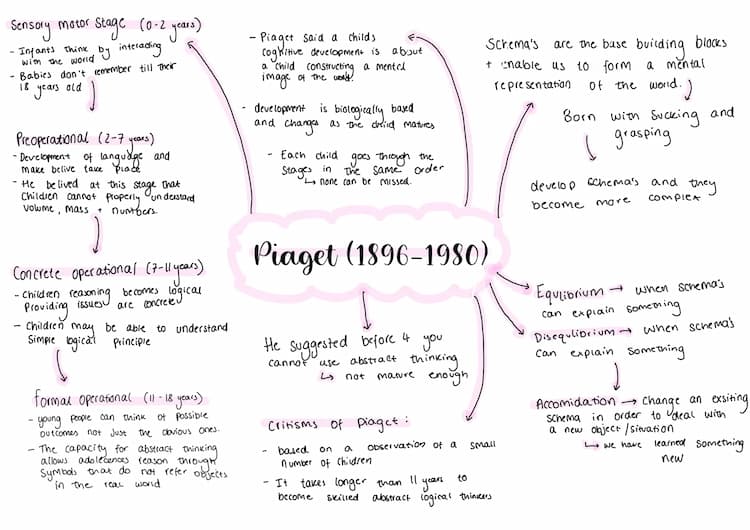 Sensory Motor Stage (0-2 years)
- Infants think by interacting
with the world
- Babies don't remember till their
18 years old
Preoperational (2-7 years)
- Development of language and
make belive take place
- He belived at this stage that
Children cannot properly understand
volume, mass + numbers.
Concrete operational (7-11 years)
- Children reasoning becomes logical
Providing issues are concrete
- Children may be able to understand
Simple logical principle
Formal operational (11-18 years)
- young people can think of possible
outcomes not just the obvious ones.
- The capacity for abstract thinking
allows adolecences reason through
Symbols that do not refer objects
in the real world
- Piaget said a childs
cognitive development is about
a child constructing a mental
image of the world.
- development is biologically based
and changes as the child matures
- Each child goes through the
stages in the same order
↳ none can be missed.
Piaget (1896-1980)
He suggested before 4 you
cannot use abstract thinking
↳ not mature enough
Critisms of Piaget:
- based on a observation of a small
number of children
- It takes longer than 11 years to
become skilled abstract logical thinkers
Schema's are the base building blocks
+ enable us to form a mental
representation of the world.
Born with sucking and
grasping
develop schema's and they
become more complex
Equlibrium → when schema's
can explain something
Disequlibrium → when schema's
can explain something
Accomidation → change an exsiting
schema in order to deal with
a new object/situation
↳ we have learned something
new